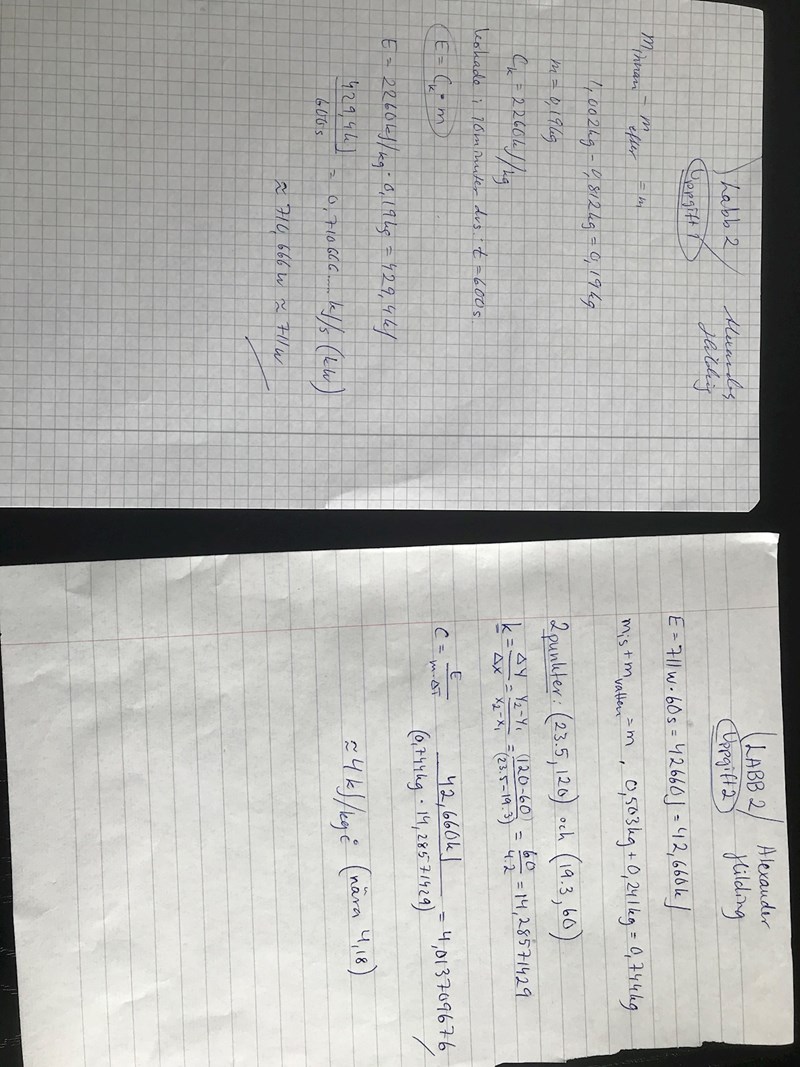 Labb 2
Alexander
Hilding
Uppgift 1
m innan - m efter = m
1,002kg - 0,812kg = 0,19kg
m = 0,19kg
Ck = 2260kJ/kg
kokade i 10 minuter dvs: t = 600s.
E = Ck · m
E = 2260kJ/kg · 0,19kg = 429,4kJ
429,4kJ / 600s = 0,710666.... kJ/s (kW)
≈ 710,666 W ≈ 711W
LABB 2
Alexander
Hilding
Uppgift 2
E = 711W · 60s = 42660J = 42,660kJ
mis + m vatten = m , 0,503kg + 0,241kg = 0,744kg
2 punkter: (23.5, 120) och (19.3, 60)
k = ΔY/ΔX = Y2-Y1/X2-X1 = (120-60)/(23.5-19.3) = 60/4.2 = 14,28571429
C = E/m·ΔT 42,660kJ/(0,744kg · 14,28571429) = 4,013709676
≈ 4 kJ/kg c° (nära 4,18)